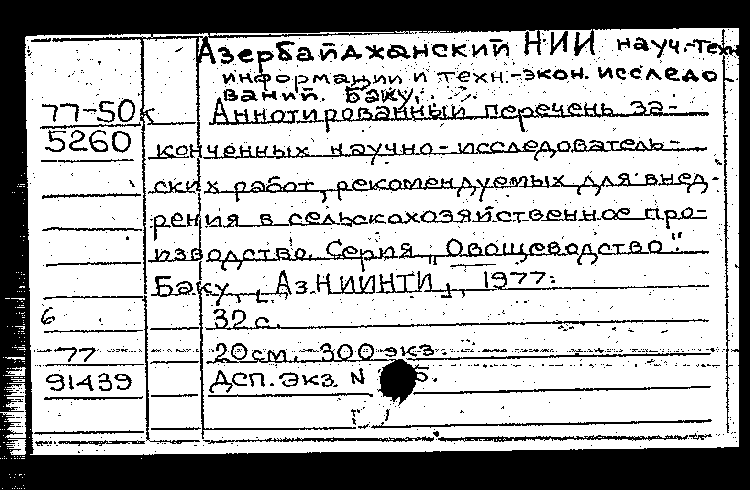 Азербайджанский НИИ науч.-техн
информации и техн.-экон. исследо-
ваний. Баку.
77-50к Аннотированный перечень за-
5260 конченных научно-исследователь-
ских работ, рекомендуемых для внед-
рения в сельскохозяйственное про-
изводство. Серия "Овощеводство".
Баку, [АзНИИНТИ], 1977.
6 32 с.
77 20см. -300 экз.
91439 ДСП. Экз. N 5.